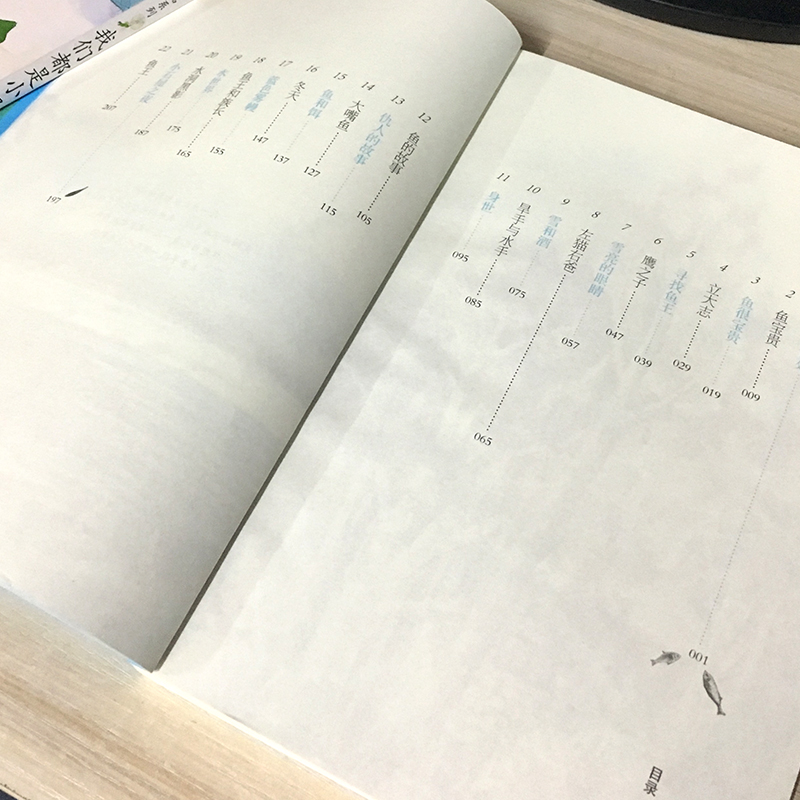 目录
001
2 鱼宝贵 009
3 鱼很宝贵 019
4 立大志 029
5 寻找鱼王 039
6 鹰之子 047
7 雪亮的眼睛 057
8 左猫右爸 065
9 雪和酒 075
10 旱手与水手 085
11 身世 095
12 鱼的故事 105
13 仇人的故事 115
14 大嘴鱼 127
15 鱼和饵 137
16 冬天 147
17 155
18 鱼王和族长 165
19 175
20 187
21 197
22 鱼王 207
系列
我们都是小